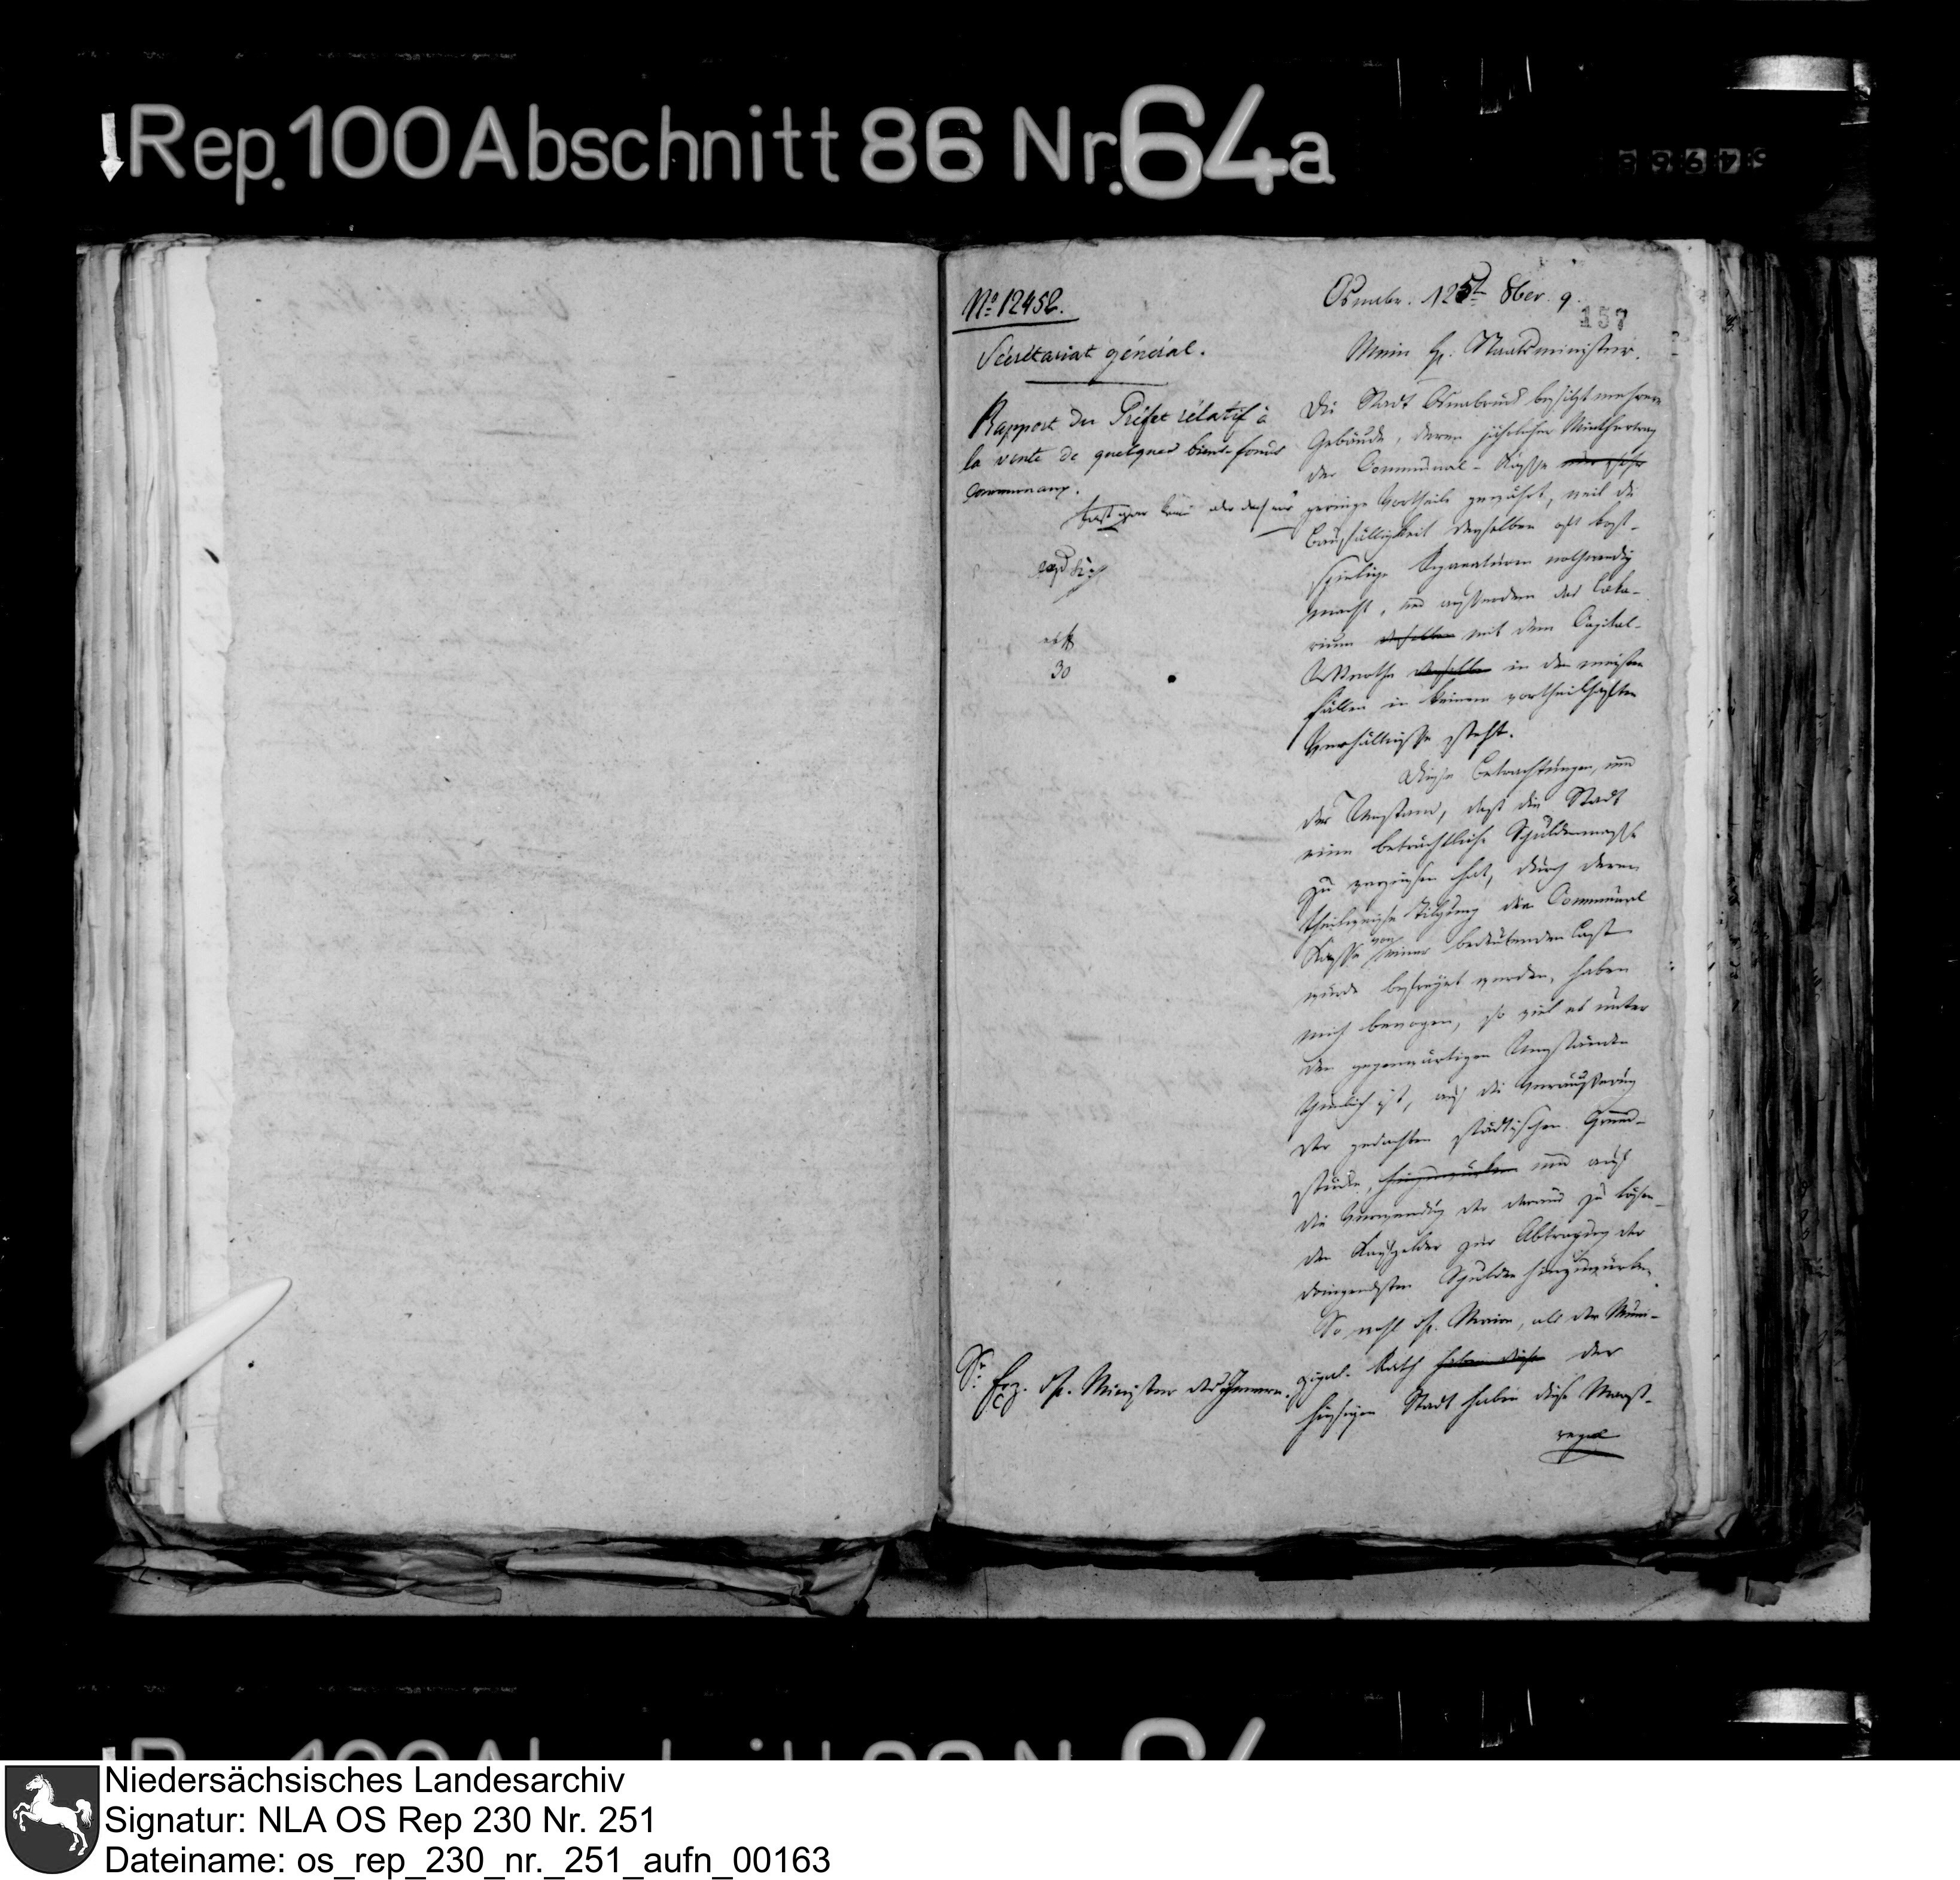 Rep. 100 Abschnitt 86 Nr. 64a
No. 12452.
Osnabr. 12 8ber. 9.
157
Sécrétariat général.
Rapport du Préfet rélatif à
la vente de quelques biens-fonds
communaux.
fast gar keine oder doch nur
exp
30
Mein Hr. Staatsminister.
Die Stadt Osnabrück besitzt mehrere
Gebäude, deren jährlicher Miethertrag
der Communal-Kasse
geringe Vortheile gewährt, weil die
Baufälligkeit derselben oft kost-
spielige Reparaturen nothwendig
macht, und ausserdem das Loka-
rium derselben mit dem Capital-
Werthe derselben in den meisten
Fällen in keinem vortheilhaften
Verhältnisse steht.
Diese Betrachtungen, und
der Umstand, dass die Stadt
eine beträchtliche Schuldenmasse
zu verzinsen hat, durch deren
theilweise Tilgung die Communal
Kasse von einer bedeutenden Last
würde befreyet werden, haben
mich bewogen, so viel es unter
den gegenwärtigen Umständen
thunlich ist, auf die Veräusserung
der gedachten städtischen Grund-
stücke, hinzuwürken und auf
die Verwendung der daraus zu lösen-
den Kaufgelder zur Abtragung der
dringendsten Schulden hinzuwürken.
So wohl Hr. Maire, als der Muni-
zipal-Rath haben diese der
hiesigen Stadt haben diese Maasz-
regel
Sr. Exz. Hr. Minister des Innern.
Rep. 100 Abschnitt 86 Nr. 64
Niedersächsisches Landesarchiv
Signatur: NLA OS Rep 230 Nr. 251
Dateiname: os_rep_230_nr._251_aufn_00163